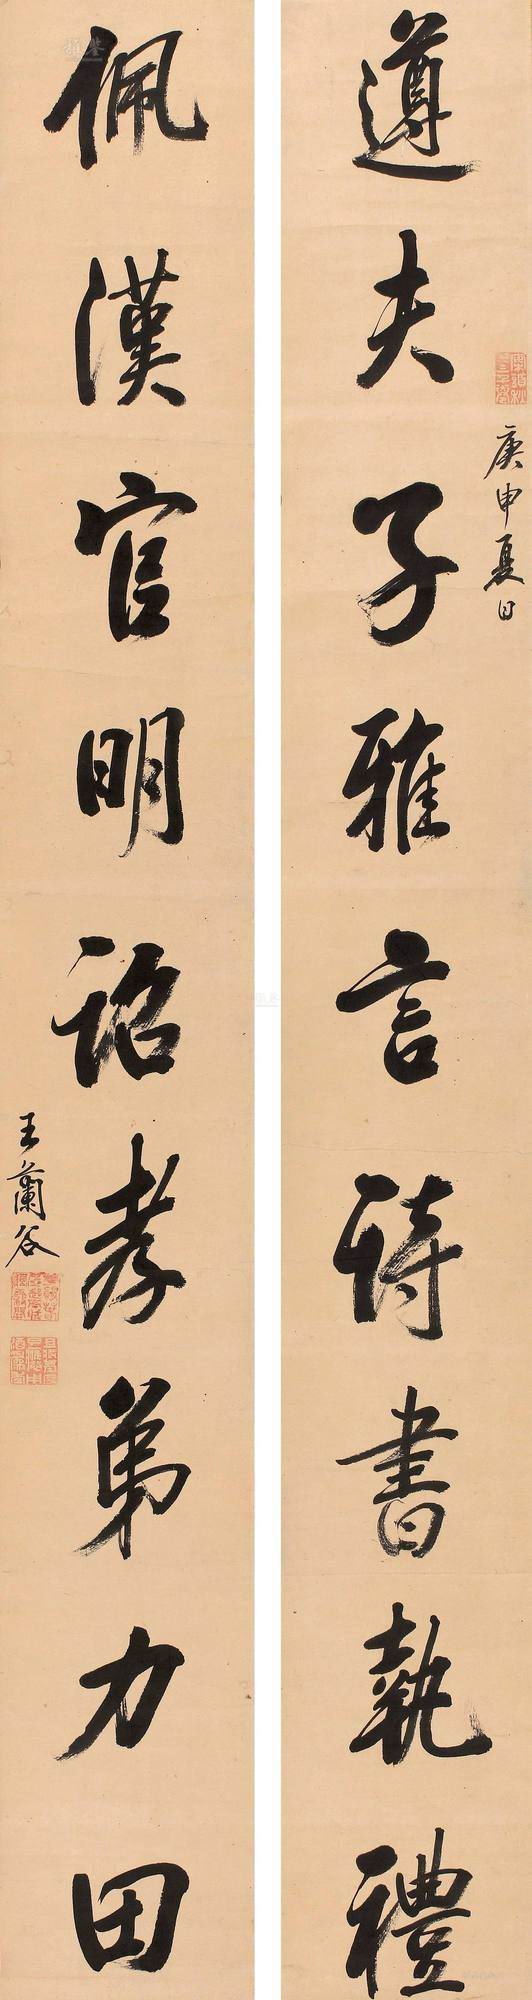 遵夫子雅言詩書執禮
庚申夏日
佩漢官明詔孝弟力田
王蘭谷